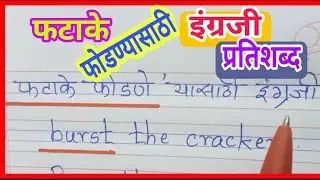 फटाके
फोडण्यासाठी
इंग्रजी
प्रतिशब्द
फटाके फोडणे यासाठी इंग्रजी
burst the cracker